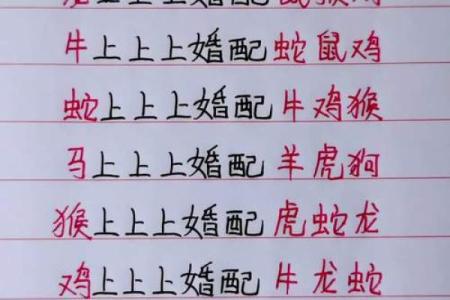 牛上上上婚配蛇鼠鸡
蛇上上上婚配牛鸡猴
马上上上婚配羊虎狗
猴上上上婚配虎蛇龙
鸡上上上婚配牛龙蛇